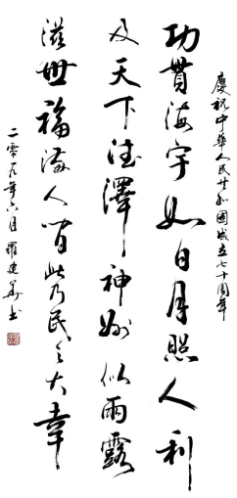 慶祝中華人民共和國成立七十周年
功貫海宇如日月照人利
及天下德澤神州似雨露
滋世福滿人間此乃民之大幸
二零一九年六月羅建書